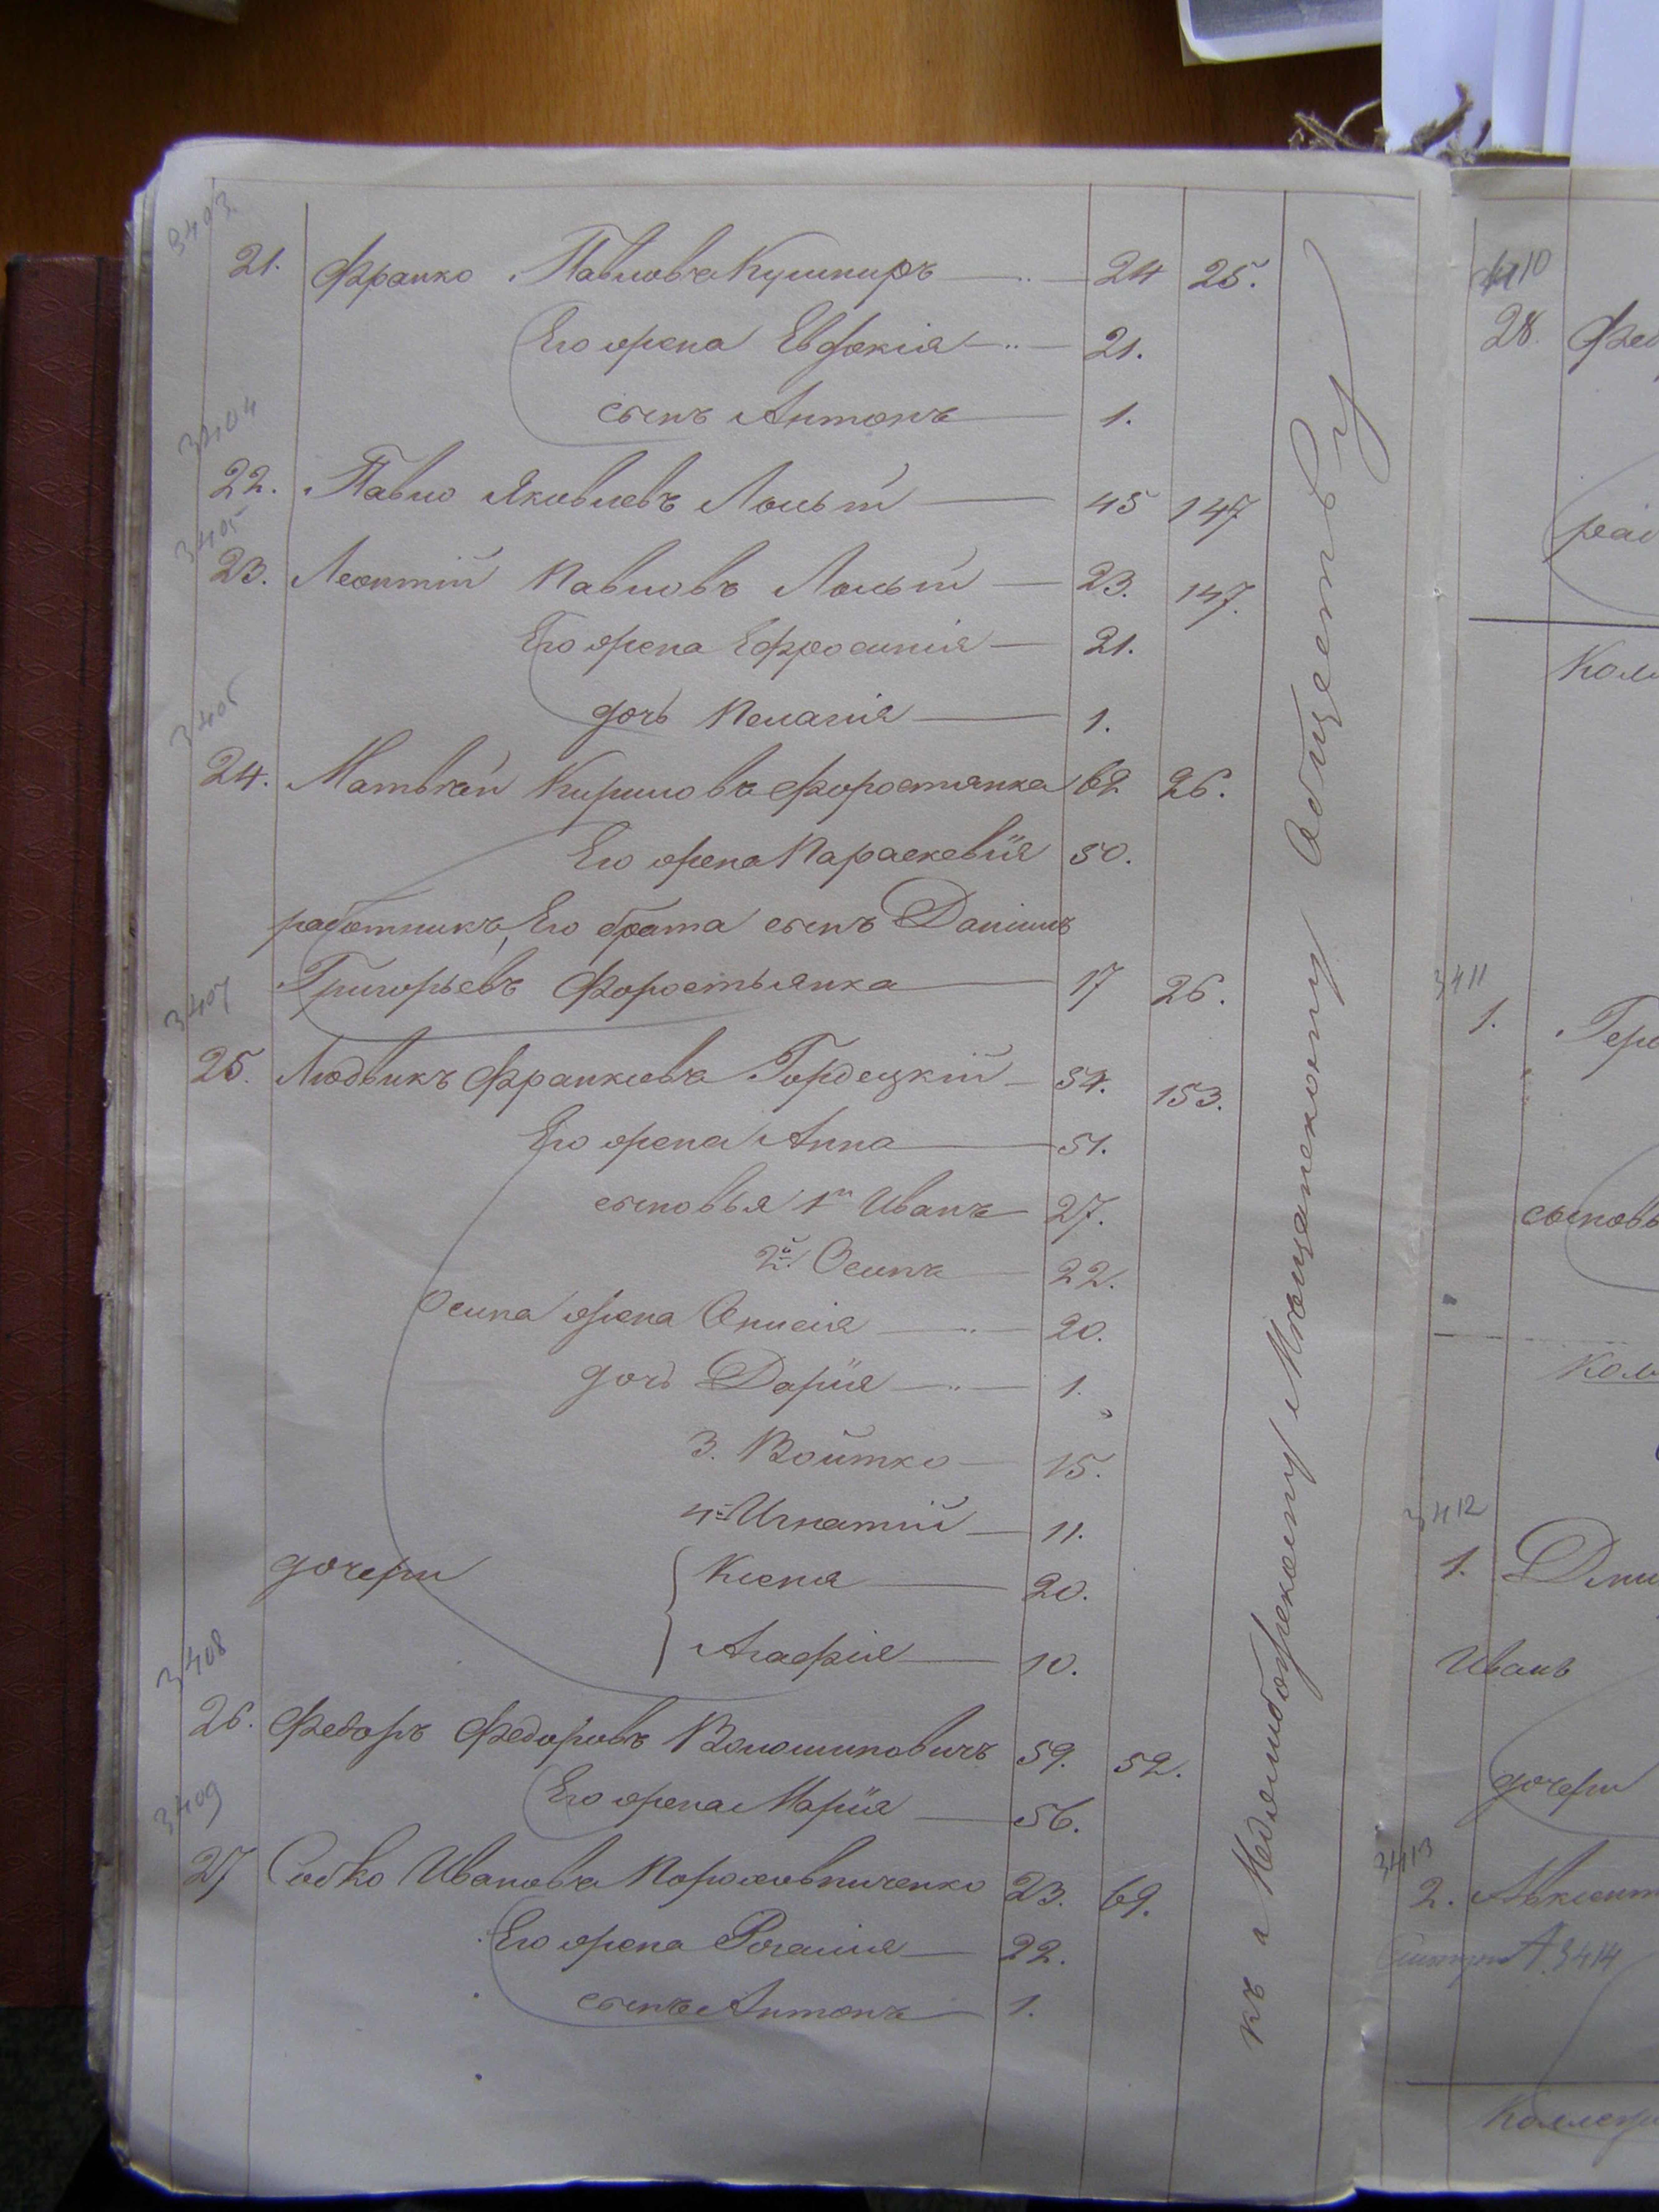 3403.
21. Франко Павловъ Кушниръ 24 25.
Его жена Евдокія 21.
сынъ Антонъ 1.
3404
22. Павло Яковлевъ 45 147
3405
23. Леонтій Павловъ 23. 147.
Его жена Ефросинія 21.
дочь Пелагія 1.
3406
24. Матвѣй Кириловъ Форостянка 62 26.
Его жена Параскевія 50.
работникъ, Его брата сынъ Данiилъ
Григорьевъ Форостьянка 17 26.
3407
25. Людвикъ Франковъ Гордецкій 54. 153.
Его жена Анна 51.
сыновья 1й Иванъ 27.
2й Осипъ 22.
Осипа жена Анисія 20.
дочь Дарія 1.
3. Войтко 15.
4й Игнатій 11.
дочери Ксеня 20.
Агафія 10.
3408
26. Федоръ Федоровъ Волошиновичъ 59. 52.
Его жена Марія 56.
3409
27 Собко Ивановъ Пороховниченко 23. 69.
Его жена 22.
сынъ Антонъ 1.
къ Меджибожскому Мѣщанскому Обществу
3410
28. Фед
Кол
3411
1. Гер
сыновь
Кол
3412
1. Дми
Иванъ
дочери
3413
2. Авксент
3414
Коллеж